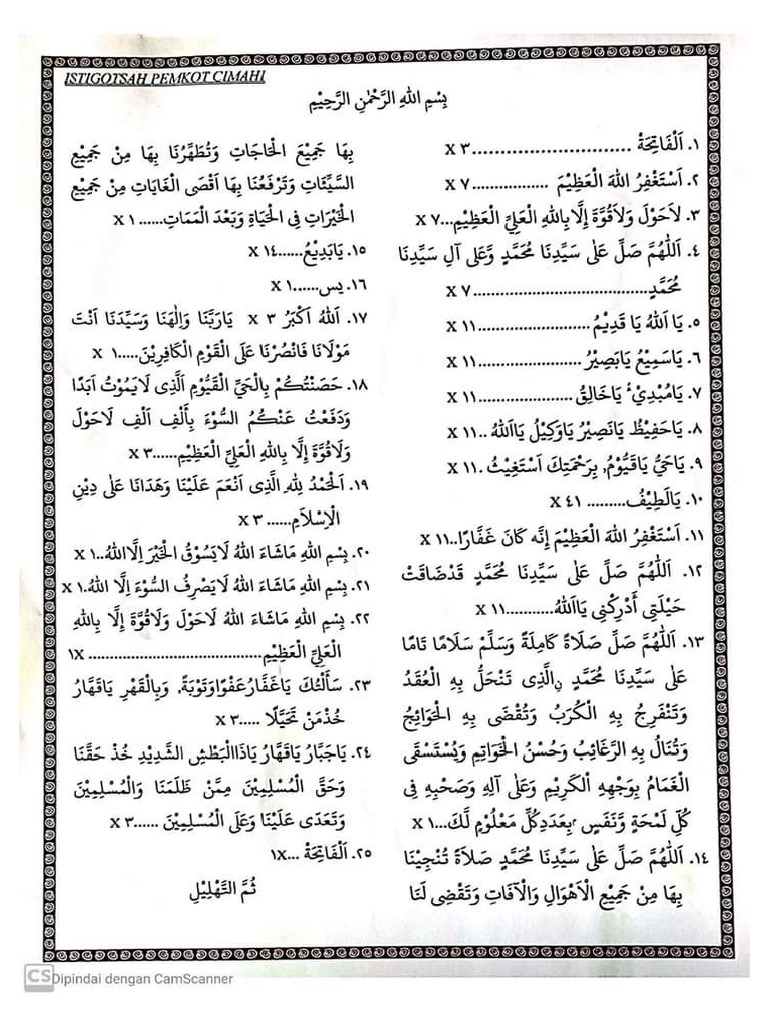 ISTIGOTSAH PEMKOT CIMAHI
بِسْمِ اللهِ الرَّحْمٰنِ الرَّحِيْمِ
١. اَلْفَاتِحَةْ ............................ ٣ X
٢. اَسْتَغْفِرُ اللهَ الْعَظِيْمَ ................. ٧ X
٣. لاَحَوْلَ وَلاَقُوَّةَ إِلَّا بِاللهِ الْعَلِيِّ الْعَظِيْمِ...٧ X
٤. اَللّٰهُمَّ صَلِّ عَلٰى سَيِّدِنَا مُحَمَّدٍ وَّعَلٰى آلِ سَيِّدِنَا
مُحَمَّدٍ......................................٧ X
٥. يَا اَللهُ يَا قَدِيْمُ.........................١١ X
٦. يَاسَمِيْعُ يَابَصِيْرُ.......................١١ X
٧. يَامُبْدِيْءُ يَاخَالِقُ.....................١١ X
٨. يَاحَفِيْظُ يَانَصِيْرُ يَاوَكِيْلُ يَااَللهُ ..١١ X
٩. يَاحَيُّ يَاقَيُّوْمُ, بِرَحْمَتِكَ اَسْتَغِيْثُ .١١ X
١٠. يَالَطِيْفُ......... ٤١ X
١١. اَسْتَغْفِرُ اللهَ الْعَظِيْمَ إِنَّه كَانَ غَفَّارًا..١١ X
١٢. اَللّٰهُمَّ صَلِّ عَلٰى سَيِّدِنَا مُحَمَّدٍ قَدْضَاقَتْ
حَيْلَتِى أَدْرِكْنِى يَااَللهُ...........١١ X
١٣. اَللّٰهُمَّ صَلِّ صَلَاةً كَامِلَةً وَسَلِّمْ سَلَامًا تَامًا
عَلٰى سَيِّدِنَا مُحَمَّدٍ ࣙالَّذِى تَنْحَلُّ بِهِ الْعُقَدُ
وَتَنْفَرِجُ بِهِ الْكُرَبُ وَتُقْضٰى بِهِ الْحَوَائِجُ
وَتُنَالُ بِهِ الرَّغَائِبُ وَحُسْنُ الْخَوَاتِمِ وَيُسْتَسْقَى
الْغَمَامُ بِوَجْهِهِ الْكَرِيْمِ وَعَلٰى آلِهِ وَصَحْبِهِ فِى
كُلِّ لَمْحَةٍ وَّنَفَسٍ بِعَدَدِكُلِّ مَعْلُوْمٍ لَّكَ...١ X
١٤. اَللّٰهُمَّ صَلِّ عَلٰى سَيِّدِنَا مُحَمَّدٍ صَلَاةً تُنْجِيْنَا
بِهَا مِنْ جَمِيْعِ الْاَهْوَالِ وَالْآفَاتِ وَتَقْضِى لَنَا
بِهَا جَمِيْعَ الْحَاجَاتِ وَتُطَهِّرُنَا بِهَا مِنْ جَمِيْعِ
السَّيِّئَاتِ وَتَرْفَعُنَا بِهَا اَقْصَى الْغَايَاتِ مِنْ جَمِيْعِ
الْخَيْرَاتِ فِى الْحَيَاةِ وَبَعْدَ الْمَمَاتِ......١ X
١٥. يَابَدِيْعُ......١٤ X
١٦. يس......١ X
١٧. اَللهُ اَكْبَرُ ٣ X يَارَبَّنَا وَاِلٰهَنَا وَسَيِّدَنَا اَنْتَ
مَوْلَانَا فَانْصُرْنَا عَلَى الْقَوْمِ الْكَافِرِيْنَ.....١ X
١٨. حَصَنْتُكُمْ بِالْحَيِّ الْقَيُّوْمِ الَّذِى لَايَمُوْتُ اَبَدًا
وَدَفَعْتُ عَنْكُمُ السُّوْءَ بِأَلْفِ اَلْفِ لَاحَوْلَ
وَلَاقُوَّةَ إِلَّا بِاللهِ الْعَلِيِّ الْعَظِيْمِ......٣ X
١٩. اَلْحَمْدُ لِلهِ الَّذِى اَنْعَمَ عَلَيْنَا وَهَدَانَا عَلٰى دِيْنِ
الْاِسْلَامِ...... ٣ X
٢٠. بِسْمِ اللهِ مَاشَاءَ اللهُ لَايَسُوْقُ الْخَيْرَ اِلَّااللهُ..١ X
٢١. بِسْمِ اللهِ مَاشَاءَ اللهُ لَايَصْرِفُ السُّوْءَ اِلَّا اللهُ.١ X
٢٢. بِسْمِ اللهِ مَاشَاءَ اللهُ لَاحَوْلَ وَلَاقُوَّةَ إِلَّا بِاللهِ
الْعَلِيِّ الْعَظِيْمِ......................................١X
٢٣. سَأَلْتُكَ يَاغَفَّارُعَفْوًاوَتَوْبَةً, وَبِالْقَهْرِ يَاقَهَّارُ
خُذْمَنْ تَحَيَّلًا .....٣ X
٢٤. يَاجَبَّارُ يَاقَهَّارُ يَاذَاالْبَطْشِ الشَّدِيْدِ خُذْ حَقَّنَا
وَحَقَّ الْمُسْلِمِيْنَ مِمَّنْ ظَلَمَنَا وَالْمُسْلِمِيْنَ
وَتَعَدَى عَلَيْنَا وَعَلَى الْمُسْلِمِيْنَ ......٣ X
٢٥. اَلْفَاتِحَةْ ...١X
ثُمَّ التَّهْلِيْلِ
CS Dipindai dengan CamScanner